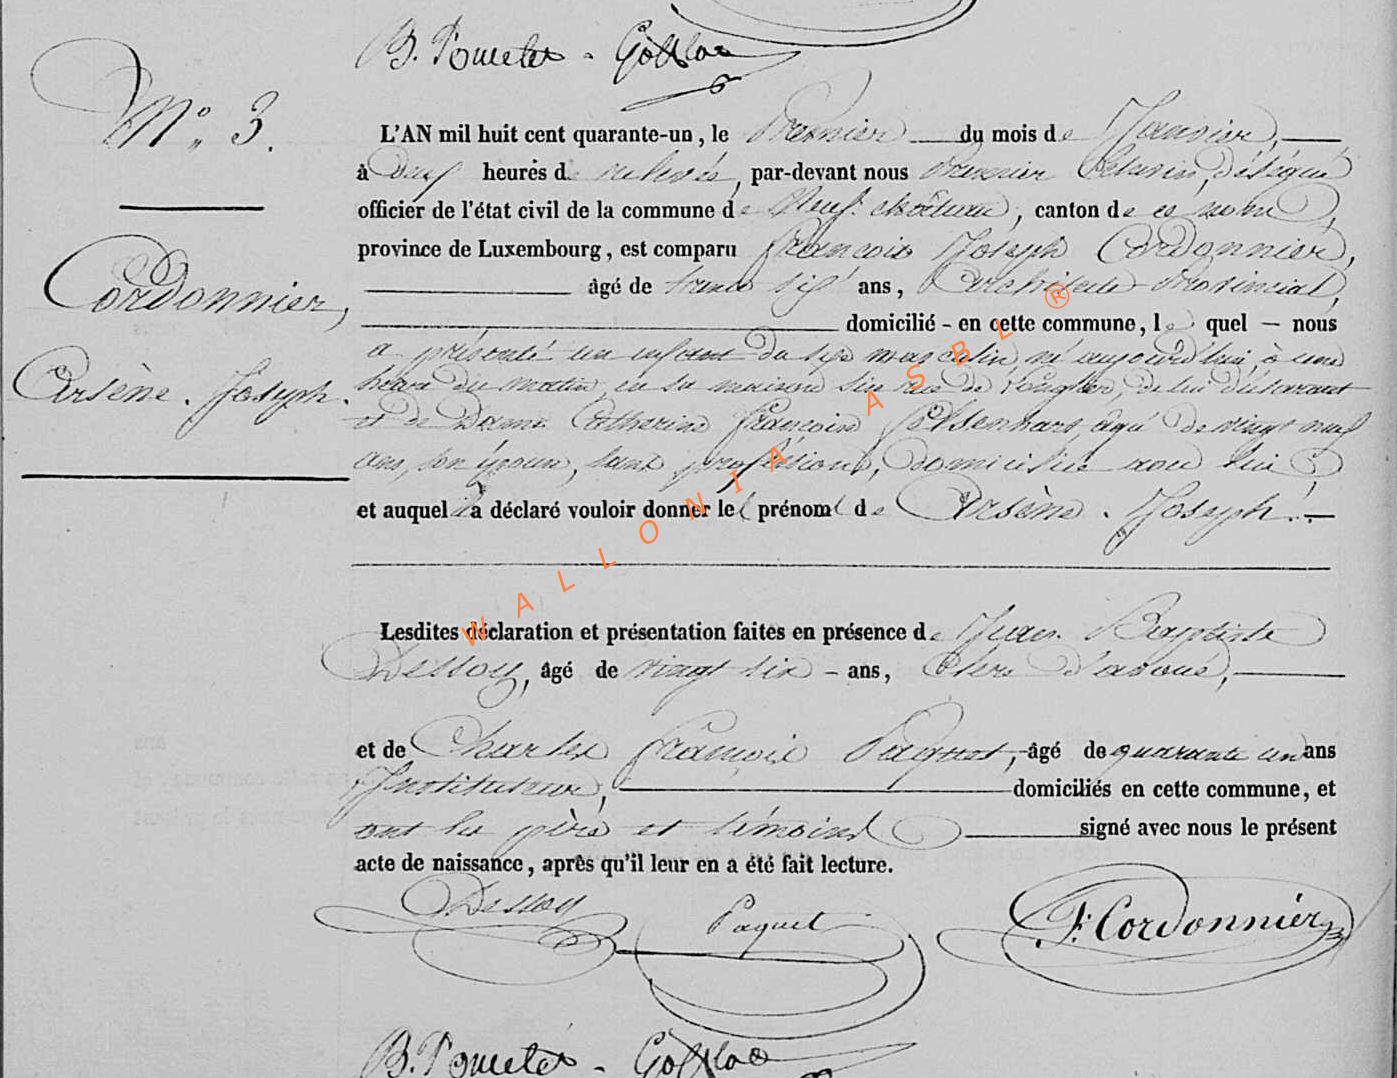 B. Poncelet - Gofflot
N° 3.
L'AN mil huit cent quarante-un, le Premier du mois de Janvier,
à deux heures de relevée, par-devant nous Premier Echevin, délégué
officier de l'état civil de la commune de Neufchâteau, canton de ce nom,
province de Luxembourg, est comparu françois Joseph Cordonnier,
âgé de trente six ans, Architecte Provincial,
domicilié - en cette commune, lequel - nous
Cordonnier,
Arsène. Joseph.
a présenté un enfant du sexe masculin, né aujourd'hui, à une
heure du matin, en sa maison sise rue de, de lui déclarant
et de Dame Catherine françoise, âgé de vingt neuf
ans, son épouse, sans profession, domiciliée avec lui
et auquel il a déclaré vouloir donner les prénoms de Arsène. Joseph.
Lesdites déclaration et présentation faites en présence de Jean Baptiste
Dessoy, âgé de vingt six - ans, Clerc d'avoué,
et de Charles françois Paquet, âgé de quarante un ans
Instituteur, domiciliés en cette commune, et
ont les père et témoins signé avec nous le présent
acte de naissance, après qu'il leur en a été fait lecture.
Dessoy Paquet F. Cordonnier
B. Poncelet - Gofflot
WALLONIA ASBL ®